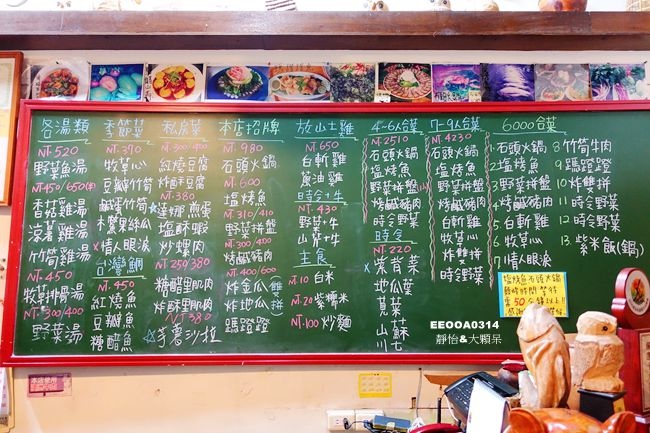 各湯類
NT.520
野菜魚湯
NT450/650(半)
香菇雞湯
涼薯雞湯
竹筍雞湯
NT.450
牧草排骨湯
NT.300/400
野菜湯
季節菜
NT.370
牧草心
豆瓣竹筍
鹹蛋竹筍
木鱉果絲瓜
x情人眼淚
台灣鯛
NT.450
紅燒魚
豆瓣魚
糖醋魚
私房菜
NT.300/400
紅燒豆腐
炸酥豆腐
NT.380
塩酥蝦
炒螺肉
NT.259/380
糖醋里肌肉
炸酥里肌肉
NT380
芋薯沙拉
本店招牌
NT.980
石頭火鍋
NT.600
塩烤魚
NT.310/410
野菜拼盤
NT.300/400
烤鹹豬肉
NT.400/600
炸金瓜
炸地瓜
雙拼
放山土雞
NT.650
白斬雞
蔥油雞
時令+牛
NT.430
野菜+牛
山蘇+牛
主食
NT.10 白米
NT.20 紫糯米
NT.100 炒麵
4~6人合菜
NT.2510
石頭火鍋
塩烤魚
野菜拼盤
烤鹹豬肉
時令野菜
時令
NT.220
x紫背菜
地瓜葉
莧菜
山蘇
川七
7~9人合菜
NT.4230
石頭火鍋
塩烤魚
野菜拼盤
烤鹹豬肉
白斬雞
牧草心
炸雙拼
時令野菜
6000合菜
1.石頭火鍋
2.塩烤魚
3.野菜拼盤
4.烤鹹豬肉
5.白斬雞
6.牧草心
7.情人眼淚
8.竹筍牛肉
10.炸雙拼
11.時令野菜
12.時令野菜
13.紫米飯(鍋)
塩烤魚石頭火鍋
50分鐘以上!!
EEOOA0314
靜怡&大顆呆
本店使用